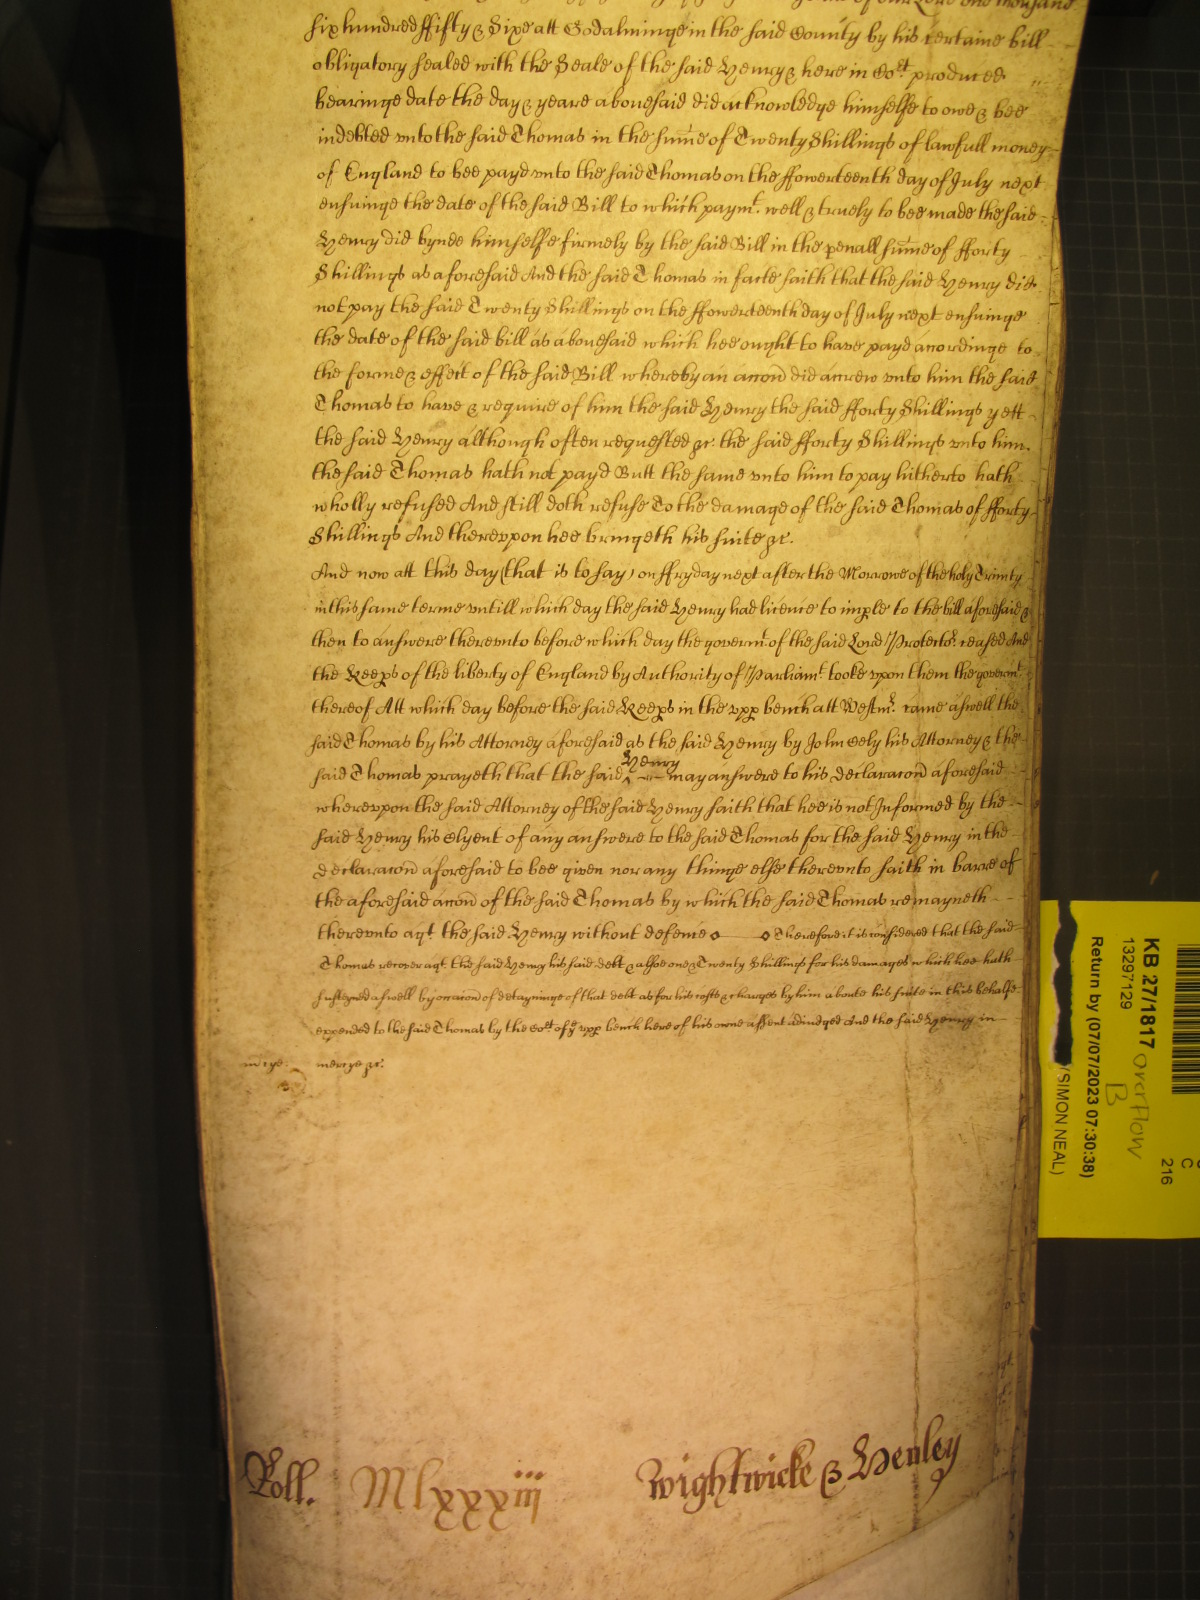 of our Lord one thousand
six hundred ffifty & Sixe att Godalminge in the said County by his certaine bill
obligatory sealed with the Seale of the said Henry & here in Cort produced
bearinge date the day & yeare abovesaid did acknowledge himselfe to owe & bee
indebted vnto the said Thomas in the sume of Twenty Shillings of lawfull money
of England to bee payd vnto the said Thomas on the ffowerteenth day of July next
ensuinge the date of the said Bill to which paymt. well & truely to bee made the said
Henry did bynde himselfe firmely by the said Bill in the penall sume of fforty
Shillings as aforesaid And the said Thomas in facte saith that the said Henry did
not pay the said Twenty Shillings on the ffowerteenth day of July next ensuinge
the date of the said bill as abovesaid which hee ought to have payd accordinge to
the forme & effect of the said Bill whereby an accon did accrew vnto him the said
Thomas to have & require of him the said Henry the said fforty Shillings yett
the said Henry although often requested &c. the said fforty Shillings vnto him
the said Thomas hath not payd Butt the same vnto him to pay hitherto hath
wholly refused And still doth refuse To the damage of the said Thomas of fforty
Shillings And therevpon hee bringeth his suite &c.
And now att this day (that is to say) on ffryday next after the Morrowe of the holy Trinity
in this same terme vntill which day the said Henry had licence to imple to the bill aforesaid &
then to answere therevnto before which day the governmt. of the said Lord Protector. ceased And
the Keeps of the liberty of England by Authority of Parliamt. tooke vpon them the governmt.
thereof Att which day before the said Keeps in the vpp bench att Westmr. came aswell the
said Thomas by his Attorney aforesaid as the said Henry by John Cely his Attorney & the
said Thomas prayeth that the said Henry may answere to his declaracon aforesaid
wherevpon the said Attorney of the said Henry saith that hee is not Informed by the
said Henry his Clyent of any answere to the said Thomas for the said Henry in the
declaracon aforesaid to bee given nor any thinge else therevnto saith in barre of
the aforesaid accon of the said Thomas by which the said Thomas remayneth
therevnto agt. the said Henry without defence Therefore it is considered that the said
Thomas recover agt. the said Henry his said debt & alsoe one & Twenty Shillings for his damages which hee hath
susteyned aswell by occacon of detayninge of that debt as for his costs & charges by him aboute his suite in this behalfe
expended to the said Thomas by the Cort of ye vpp bench here of his owne assent adiudged And the said Henry in
mercye mercye &c.
Roll. Mlxxxiij Wightwicke & Henley
KB 27/1817
13297129
overflow
B
Return by (07/07/2023 07:30:38)
(SIMON NEAL)
C
216